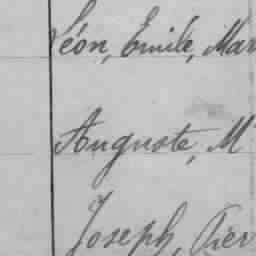 Léon, Emile, Mar
Auguste, M
Joseph, Pier